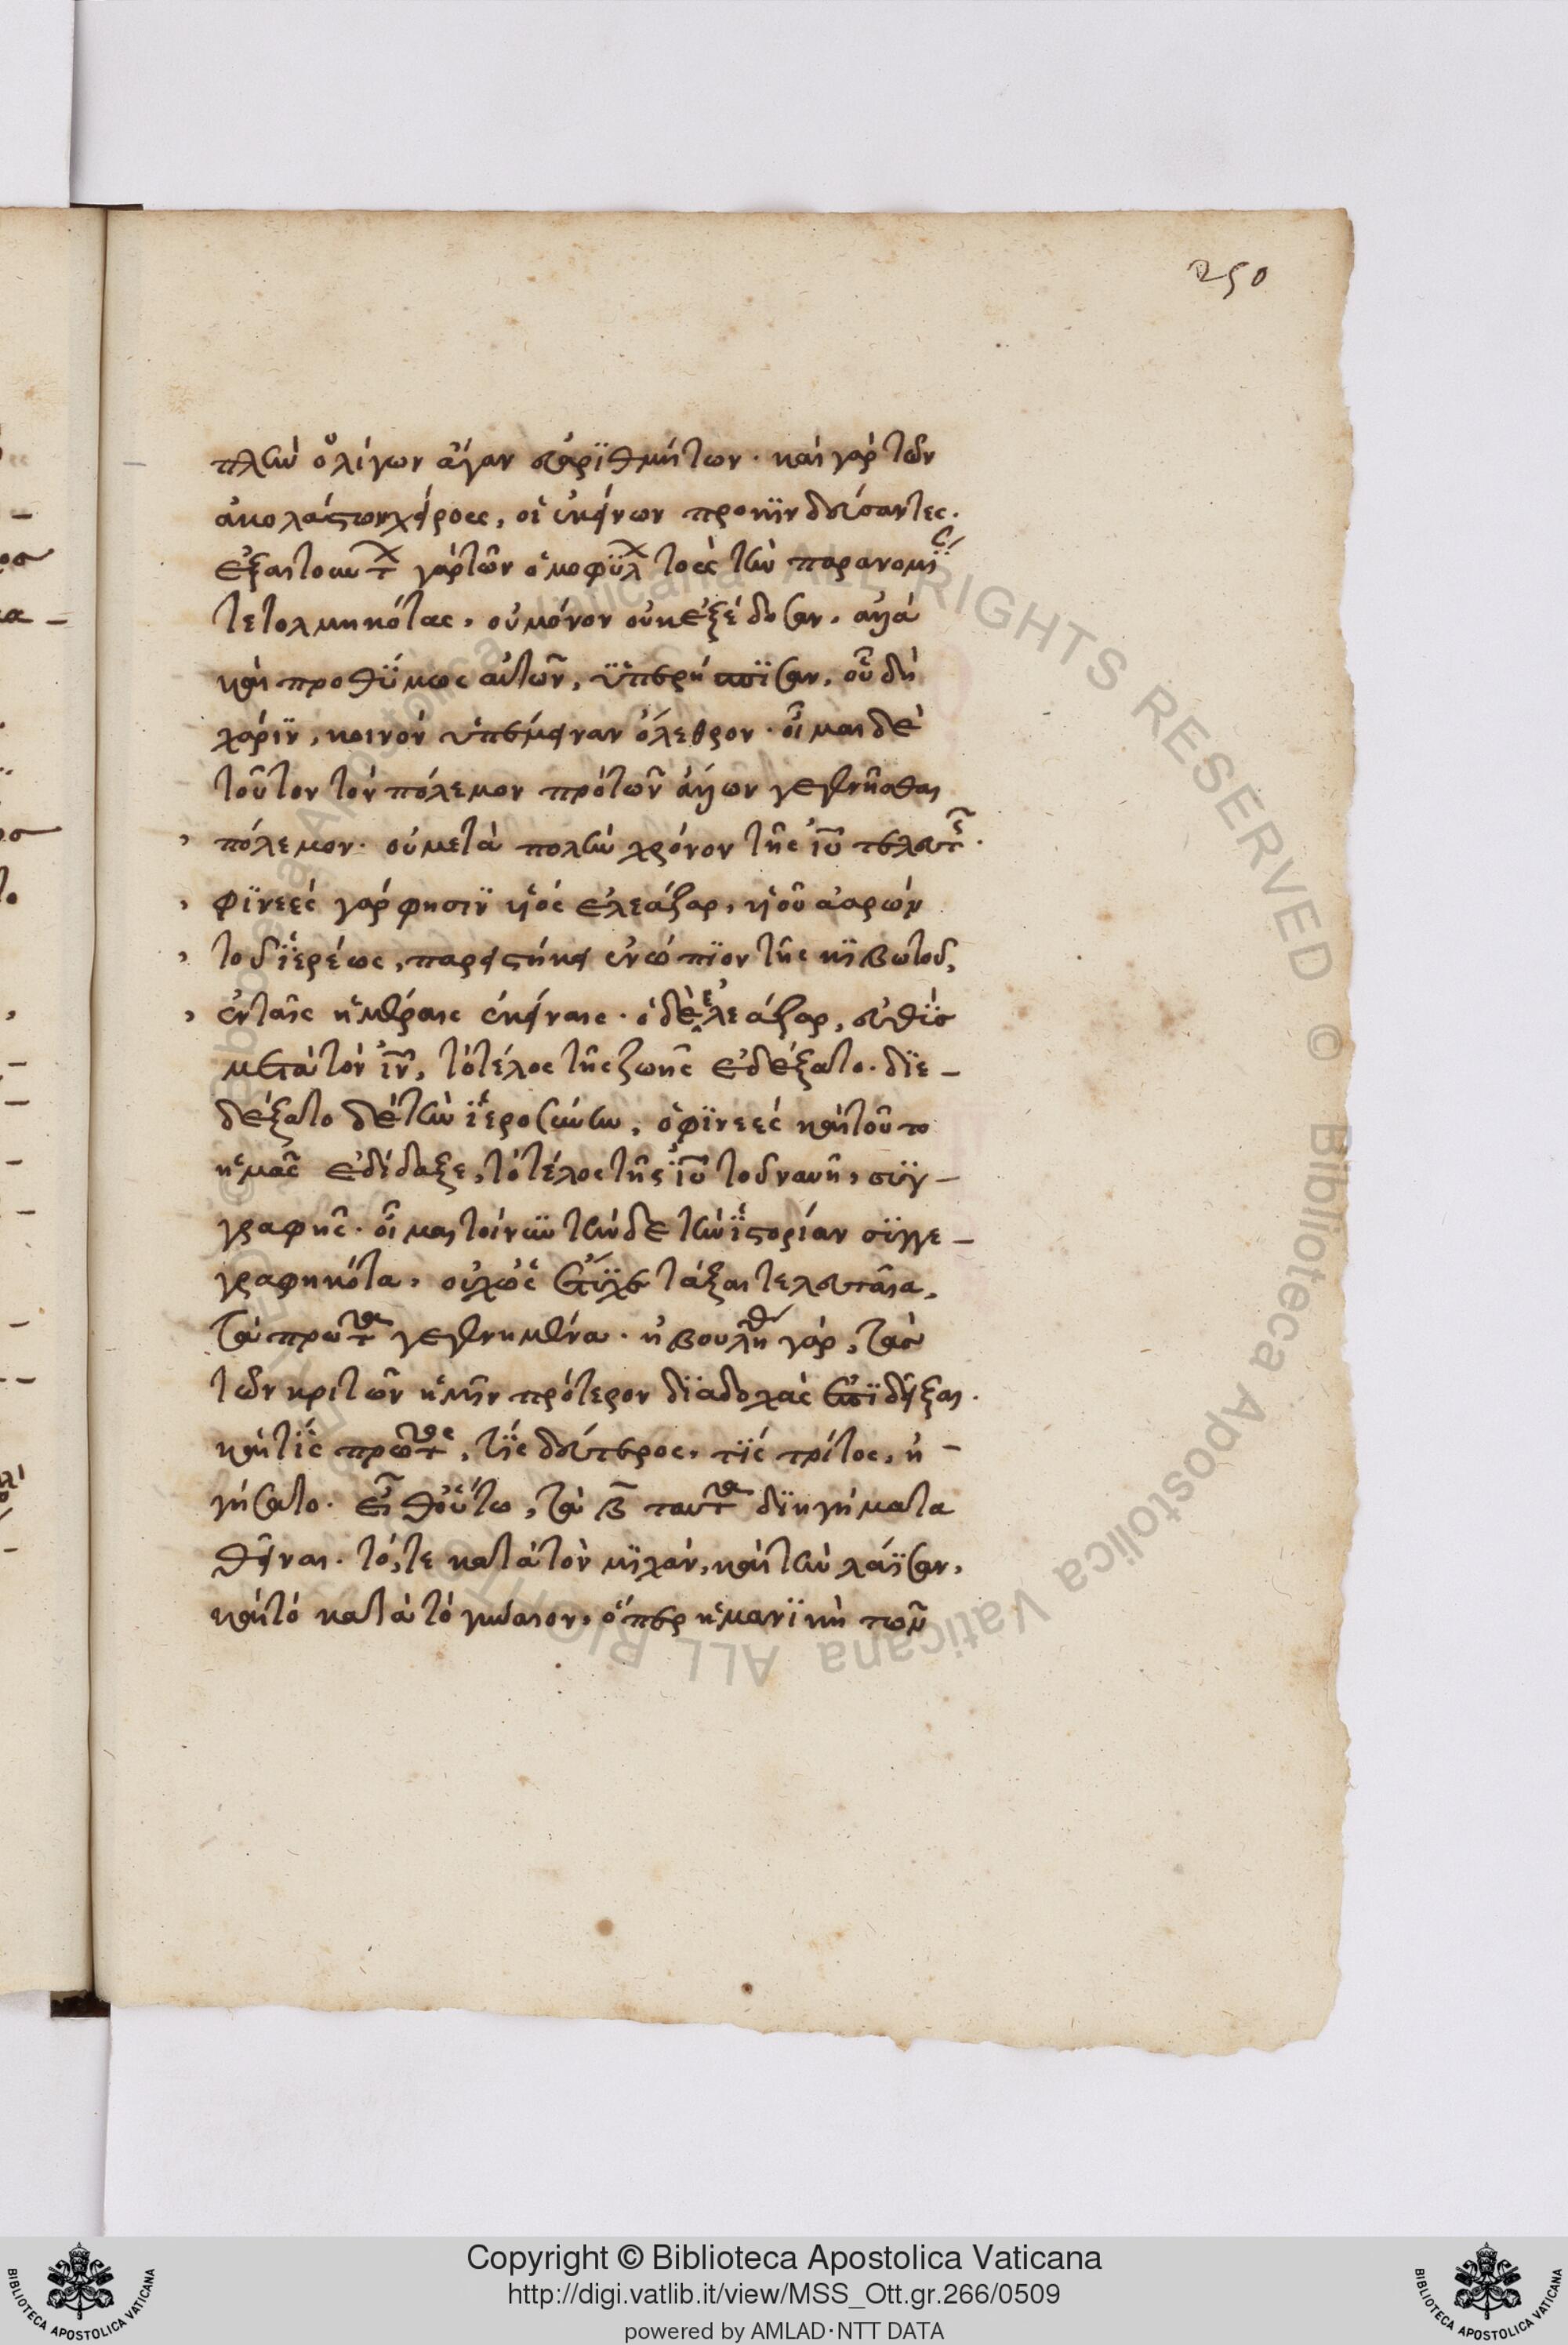 250
πλὴν ὀλίγων ἄγαν εὐαρϊθμήτων. καὶ γὰρ τῶν
ἀκολάστων χείρους, οἱ ἐκείνων προμηθούσαντες.
ἐξαιτουντ γὰρ τῶν ὁμοφύλ τοὺς τὴν παρανομί
τετολμηκότας, οὐ μόνον οὐκ ἐξέδοσαν, ἀλλὰ
καὶ προθϋμως αὐτῶν, ϋπερήσπϊσαν, οὗ δὴ
χάρϊν, κοινὸν ὑπέμειναν ὄλεθρον. οἶμαι δὲ
τοῦτον τὸν πόλεμον πρὸ τῶν ἄλλων γεγενῆσθαι
πόλεμον. οὐ μετὰ πολὺν χρόνον τῆς ἰῦ τελευτ.
φϊνεὲς γάρ φησϊν υἱὸς ἐλεάζαρ, υἱοῦ ἀαρὼν
τοῦ ἱερέως, παρειστήκει ἐνώπϊον τῆς κϊβωτοῦ,
ἐν ταῖς ἡμέραις ἐκείναις. ὁ δὲ ἐλεάζαρ, εὐθὺς
μετὰ τὸν ἰν, τὸ τέλος τῆς ζωῆς ἐδέξατο. διε-
δέξατο δὲ τὴν ἱεροσύνην, ὁ φϊνεές καὶ τοῦτο
ἡμᾶς ἐδίδαξε, τὸ τέλος τῆς ἰῦ τοῦ ναυῆ, συγ-
γραφῆς. οἶμαι τοίνυν τὸν τήνδε τὴν ἱστορίαν συγγε-
γραφηκότα, οὐχ ὡς ἔτυχε τάξαι τελευταῖα,
τὰ πρῶτα γεγενημένα. ἠβουλήθη γὰρ, τὰς
τῶν κριτῶν ἡμῖν πρότερον διαδοχὰς ἐπιδεῖξαι.
καὶ τίς πρῶτος, τίς δεύτερος, τίς τρίτος, ἡ-
γήσατο. εἶθ' οὕτω, τὰ β ταῦτα διηγήματα
θεῖναι. τό, τε κατὰ τὸν μϊχὰν, καὶ τὴν λάϊσαν,
καὶ τὸ κατὰ τὸ γύναιον, ὅπερ ἡ μανϊκὴ τῶν
Copyright © Biblioteca Apostolica Vaticana
http://digi.vatlib.it/view/MSS_Ott.gr.266/0509
powered by AMLAD·NTT DATA